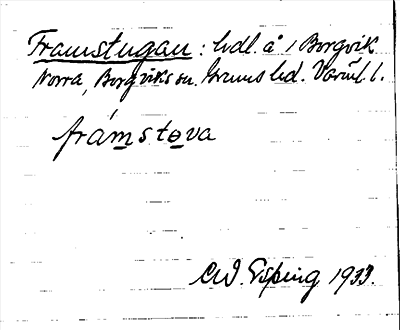 Framstugan: hdl. å 1 Borgvik
Norra, Borgviks sn. Grums hd. Värml. l.
framstova
C.W. Esping 1933.